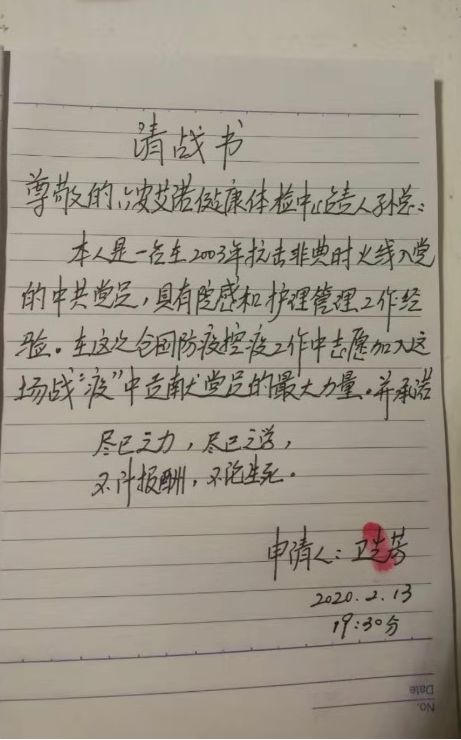 请战书
尊敬的六安艾诺健康体检中心负责人孙总：
本人是一名在2003年抗击非典时火线入党
的中共党员，具有院感和护理管理工作经
验。在这次全国防疫控疫工作中志愿加入这
场战“疫”中贡献党员的最大力量。并承诺
尽己之力，尽己之学，
不计报酬，不论生死。
申请人：卫芳
2020.2.13
19:30分
Date
No.